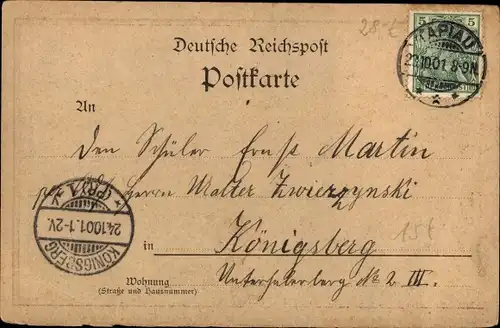 28.-
5 5
TAPIAU
23.10.01 8-9N
Deutsche Reichspost
Postkarte
An
Den Schüler Ernst Martin
Herrn Walter Zwierzynski
in Königsberg
15€
Unterhaberberg No 2 III.
Wohnung
(Straße und Hausnummer)
KÖNIGSBERG
24.10.01. 1-2V.
(PR.) 1